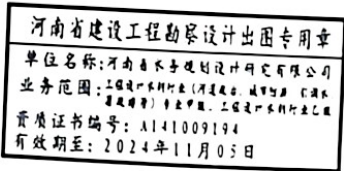 河南省建设工程勘察设计出图专用章
单位名称:河南省水事规划设计研究有限公司
业务范围:工程设计水利行业(河道整治、城市防洪、
专业甲级、工程设计水利行业乙级
资质证书编号:A141009194
有效期至:2024年11月05日